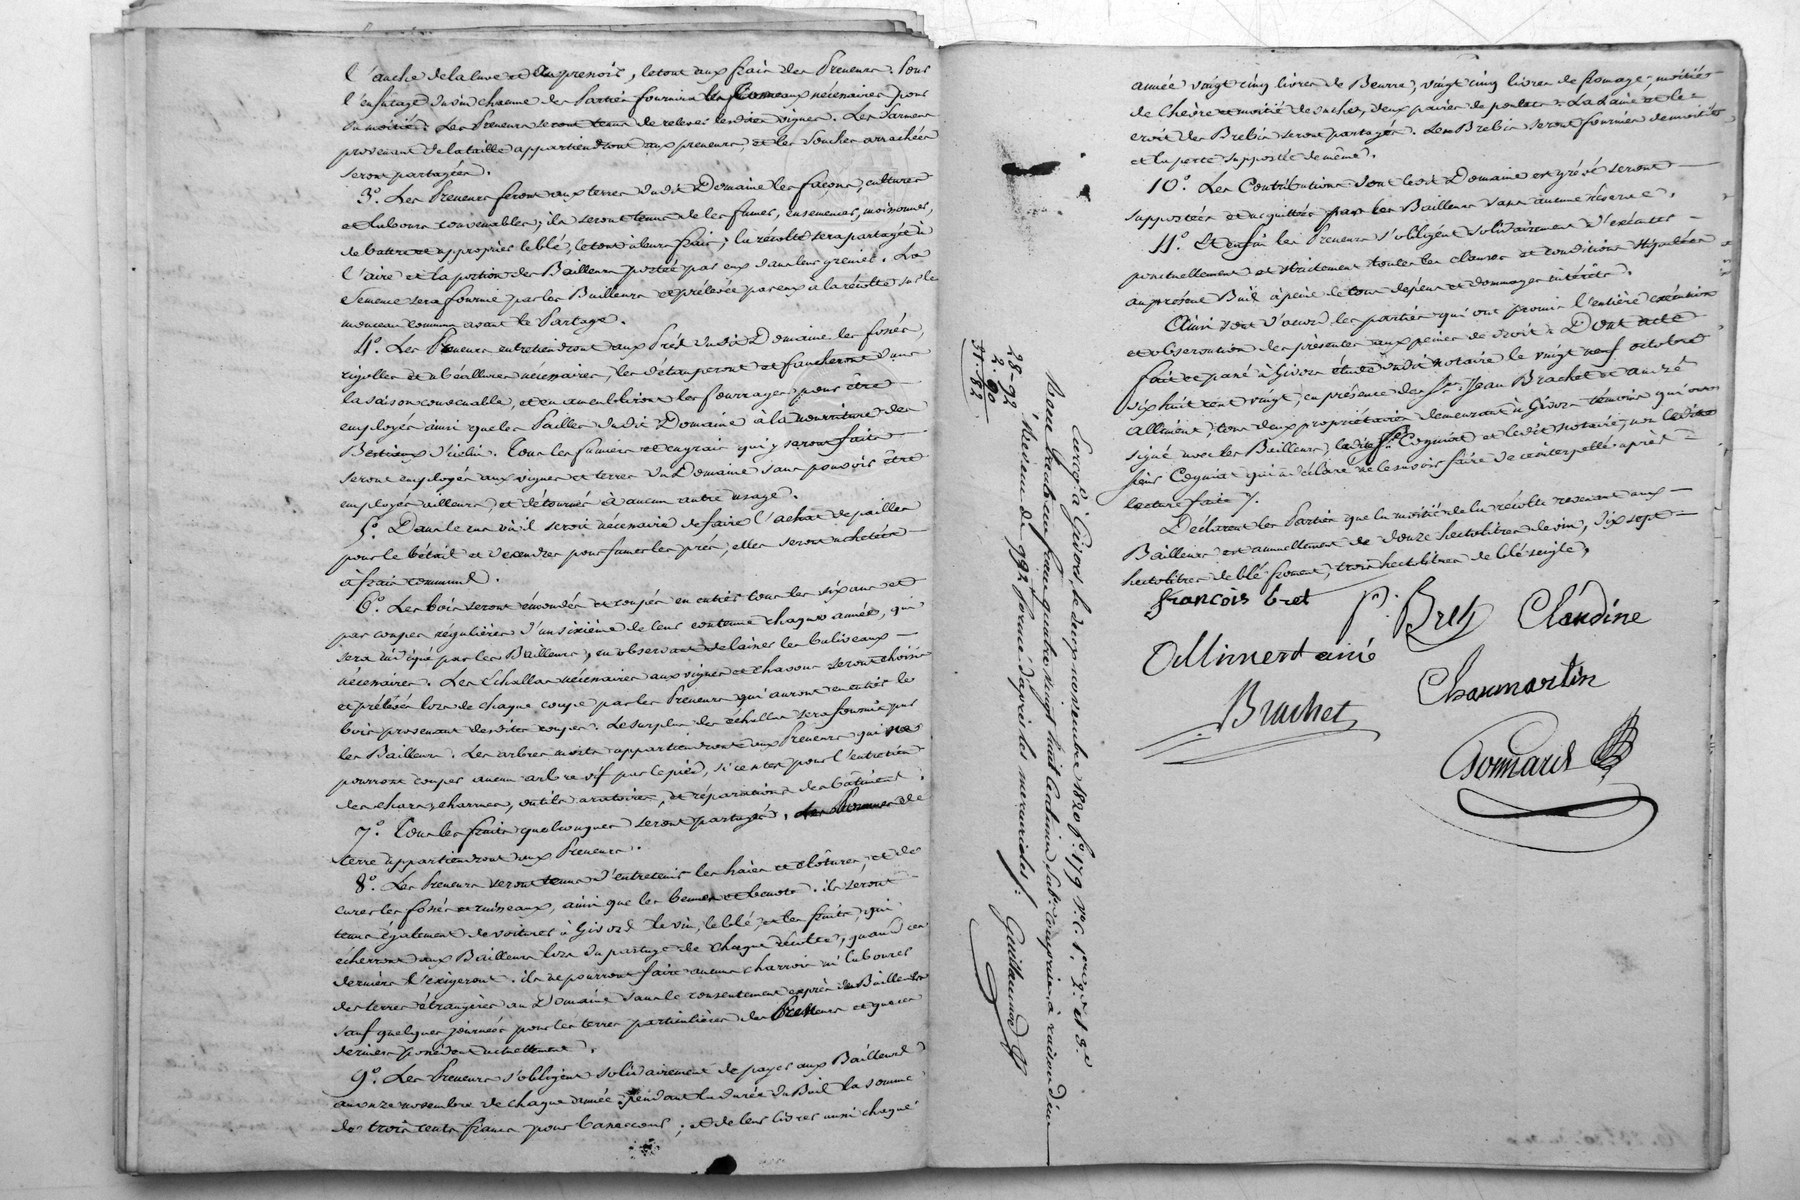 l'anche de la cuve et du pressoir, le tout aux frais des Preneurs. Pour
l'enfutage du vin chacune des Parties fournira les tonneaux nécessaires pour
sa moitié. Les Preneurs seront tenus de relever les dites vignes. Les Sarmens
provenant de la taille appartiendront aux preneurs, et les Souches arrachées
seront partagées.
3.º Les Preneurs feront aux terres du dit Domaine les façons, cultures
et labours convenables; ils seront tenus de les fumer, ensemencer, moissonner,
de battre et approprier le blé, le tout à leurs frais; la récolte sera partagée à
l'aire et la portion des Bailleurs portée par eux dans leur grenier. La
Semence sera fournie par les Bailleurs et prélevée par eux à la récolte sur le
monceau commun avant le Partage.
4.º Les Preneurs entretiendront aux Prés du dit Domaine les fossés,
rigolles et nécessaires, les détauperont et faucheront dans
la saison convenable, et en les fourrages pour être
employés ainsi que les Pailles du dit Domaine à la nourriture des
Bestiaux d'icelui. Tous les fumiers et engrais qui y seront faits
seront employés aux vignes et terres du Domaine sans pouvoir être
employés ailleurs, et détournés à aucun autre usage.
5.º Dans le cas où il seroit nécessaire de faire l'achat de pailles
pour le bétail et de cendres pour fumer les prés, elles seront achetées
à frais communs.
6.º Les bois seront émondés et coupés en entier tous les six ans et
par coupes régulières d'un sixième de leur contenue chaque année, qui
sera indiqué par les Bailleurs, en observant de laisser les baliveaux
nécessaires. Les Echallas nécessaires aux vignes et seront choisis
et prélevés lors de chaque coupe par les Preneurs qui auront en entier le
bois provenant des dites coupes. Le surplus des échallas sera fournie par
les Bailleurs. Les arbres morts appartiendront aux Preneurs qui ne
pourront couper aucun arbre vif par le pied, si ce n'est pour l'entretien
des chars, charrues, outils aratoires, et réparations des bâtimens.
7.º Tous les fruits quelconques seront partagés. Les Pommes de
terre appartiendront aux Preneurs.
8.º Les Preneurs seront tenus d'entretenir les haies et clôtures, et de
curer les fossés et ruisseaux, ainsi que les bennes et benots. ils seront
tenus également de voiturer à Givors le vin, le blé, et les fruits, qui
écherront aux Bailleurs lors du partage de chaque récolte, quand ces
derniers l'exigeront. ils ne pourront faire aucuns charrois ni labours
des terres étrangères au Domaine sans le consentement exprès des Bailleurs
sauf quelques journées pour les terres particulières des Preneurs et que ces
derniers possèdent actuellement.
9.º Les Preneurs s'obligent solidairement de payer aux Bailleurs
au onze novembre de chaque année pendant la durée du Bail la somme
de trois cents francs pour ; et de leur livrer aussi chaque
année vingt cinq livres de Beurre, vingt cinq livres de fromage, moitiés
de Chèvre et moitié de vache, deux paires de poulets. La laine et le
croit des Brebis seront partagés. Les Brebis seront fournies de moitié
et la perte supportée de même.
10.º Les Contributions dont le dit Domaine est grévé seront
supportées et acquittées par les Bailleurs sans aucune réserve.
11.º Et enfin les Preneurs s'obligent solidairement d'exécuter
ponctuellement et strictement toutes les clauses et conditions stipulées
au présent Bail à peine de tous dépens et dommages intérêts.
Ainsi sont d'accord les parties qui ont promis l'entière exécution
et observation des présentes aux peines de droit. Dont acte
fait et passé à Givors étude du dit notaire le vingt neuf octobre
dix huit cent vingt, en présence des Srs Jean Brachet et André
Alliment, tous deux propriétaires demeurant à Givors témoins qui ont
signé avec les Bailleurs, la dite Cognat et le dit notaire, non le dit
sieur Cognat qui a déclaré ne le savoir faire de ce interpellé après
lecture faite.
Déclarent les Parties que la moitié de la récolte revenant aux
Bailleurs est annuellement de douze hectolitres de vin, dix sept
hectolitres de blé froment, trois hectolitres de blé seigle.
françois bret P. Bret Claudine
Alliment ainé
Chaumartin
Brachet
Gonnard
Enreg.é à Givors, le deux novembre 1820 f.º 179 v.º C. 1.ere 2.e et 3.e
Reçu francs quatre vingt huit centimes à raison d'un
revenu de 992 francs d'après les mercuriales. Guillaume
28-92
2.90
31.82